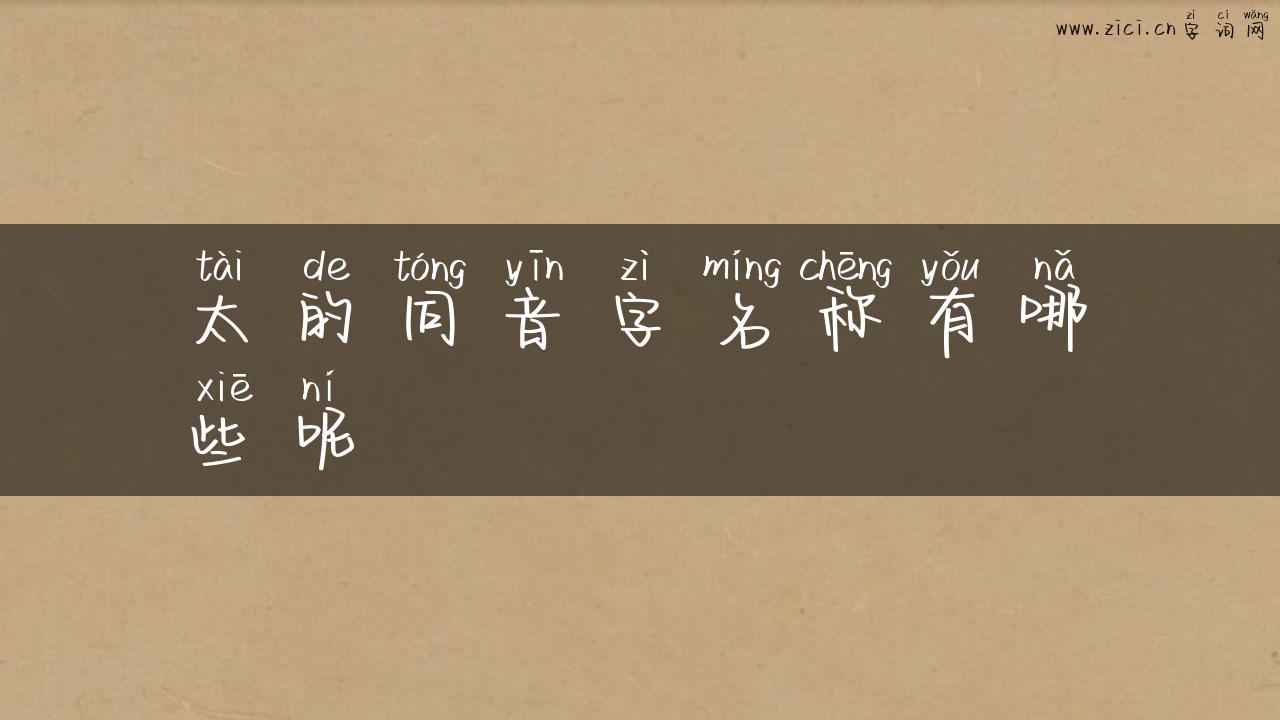 zì cí wǎng
www.zici.cn 字词网
tài de tóng yīn zì míng chēng yǒu nǎ
太的同音字名称有哪
xiē ní
些呢